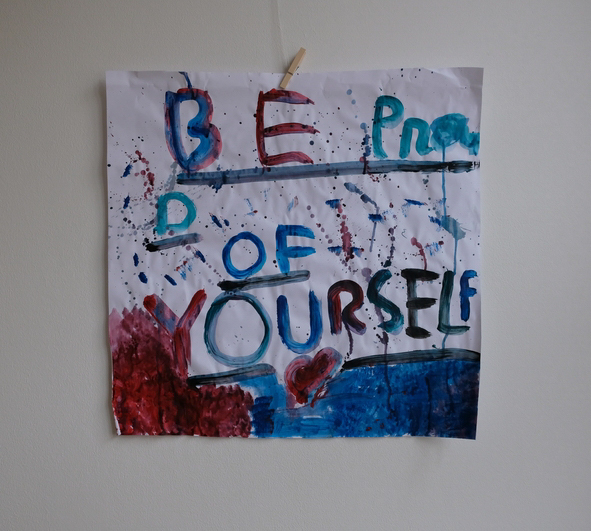 BE Prou
D
OF
YOURSELF